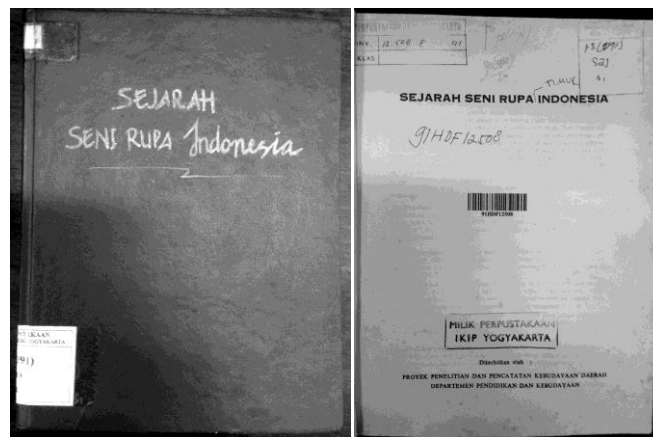 SEJARAH
SENI RUPA Indonesia
YOGYAKARTA
KLAS
TIMUR
SEJARAH SENI RUPA INDONESIA
91HDF12508
91HDF12508
MILIK PERPUSTAKAAN
IKIP YOGYAKARTA
Diterbitkan oleh :
PROYEK PENELITIAN DAN PENCATATAN KEBUDAYAAN DAERAH
DEPARTEMEN PENDIDIKAN DAN KEBUDAYAAN